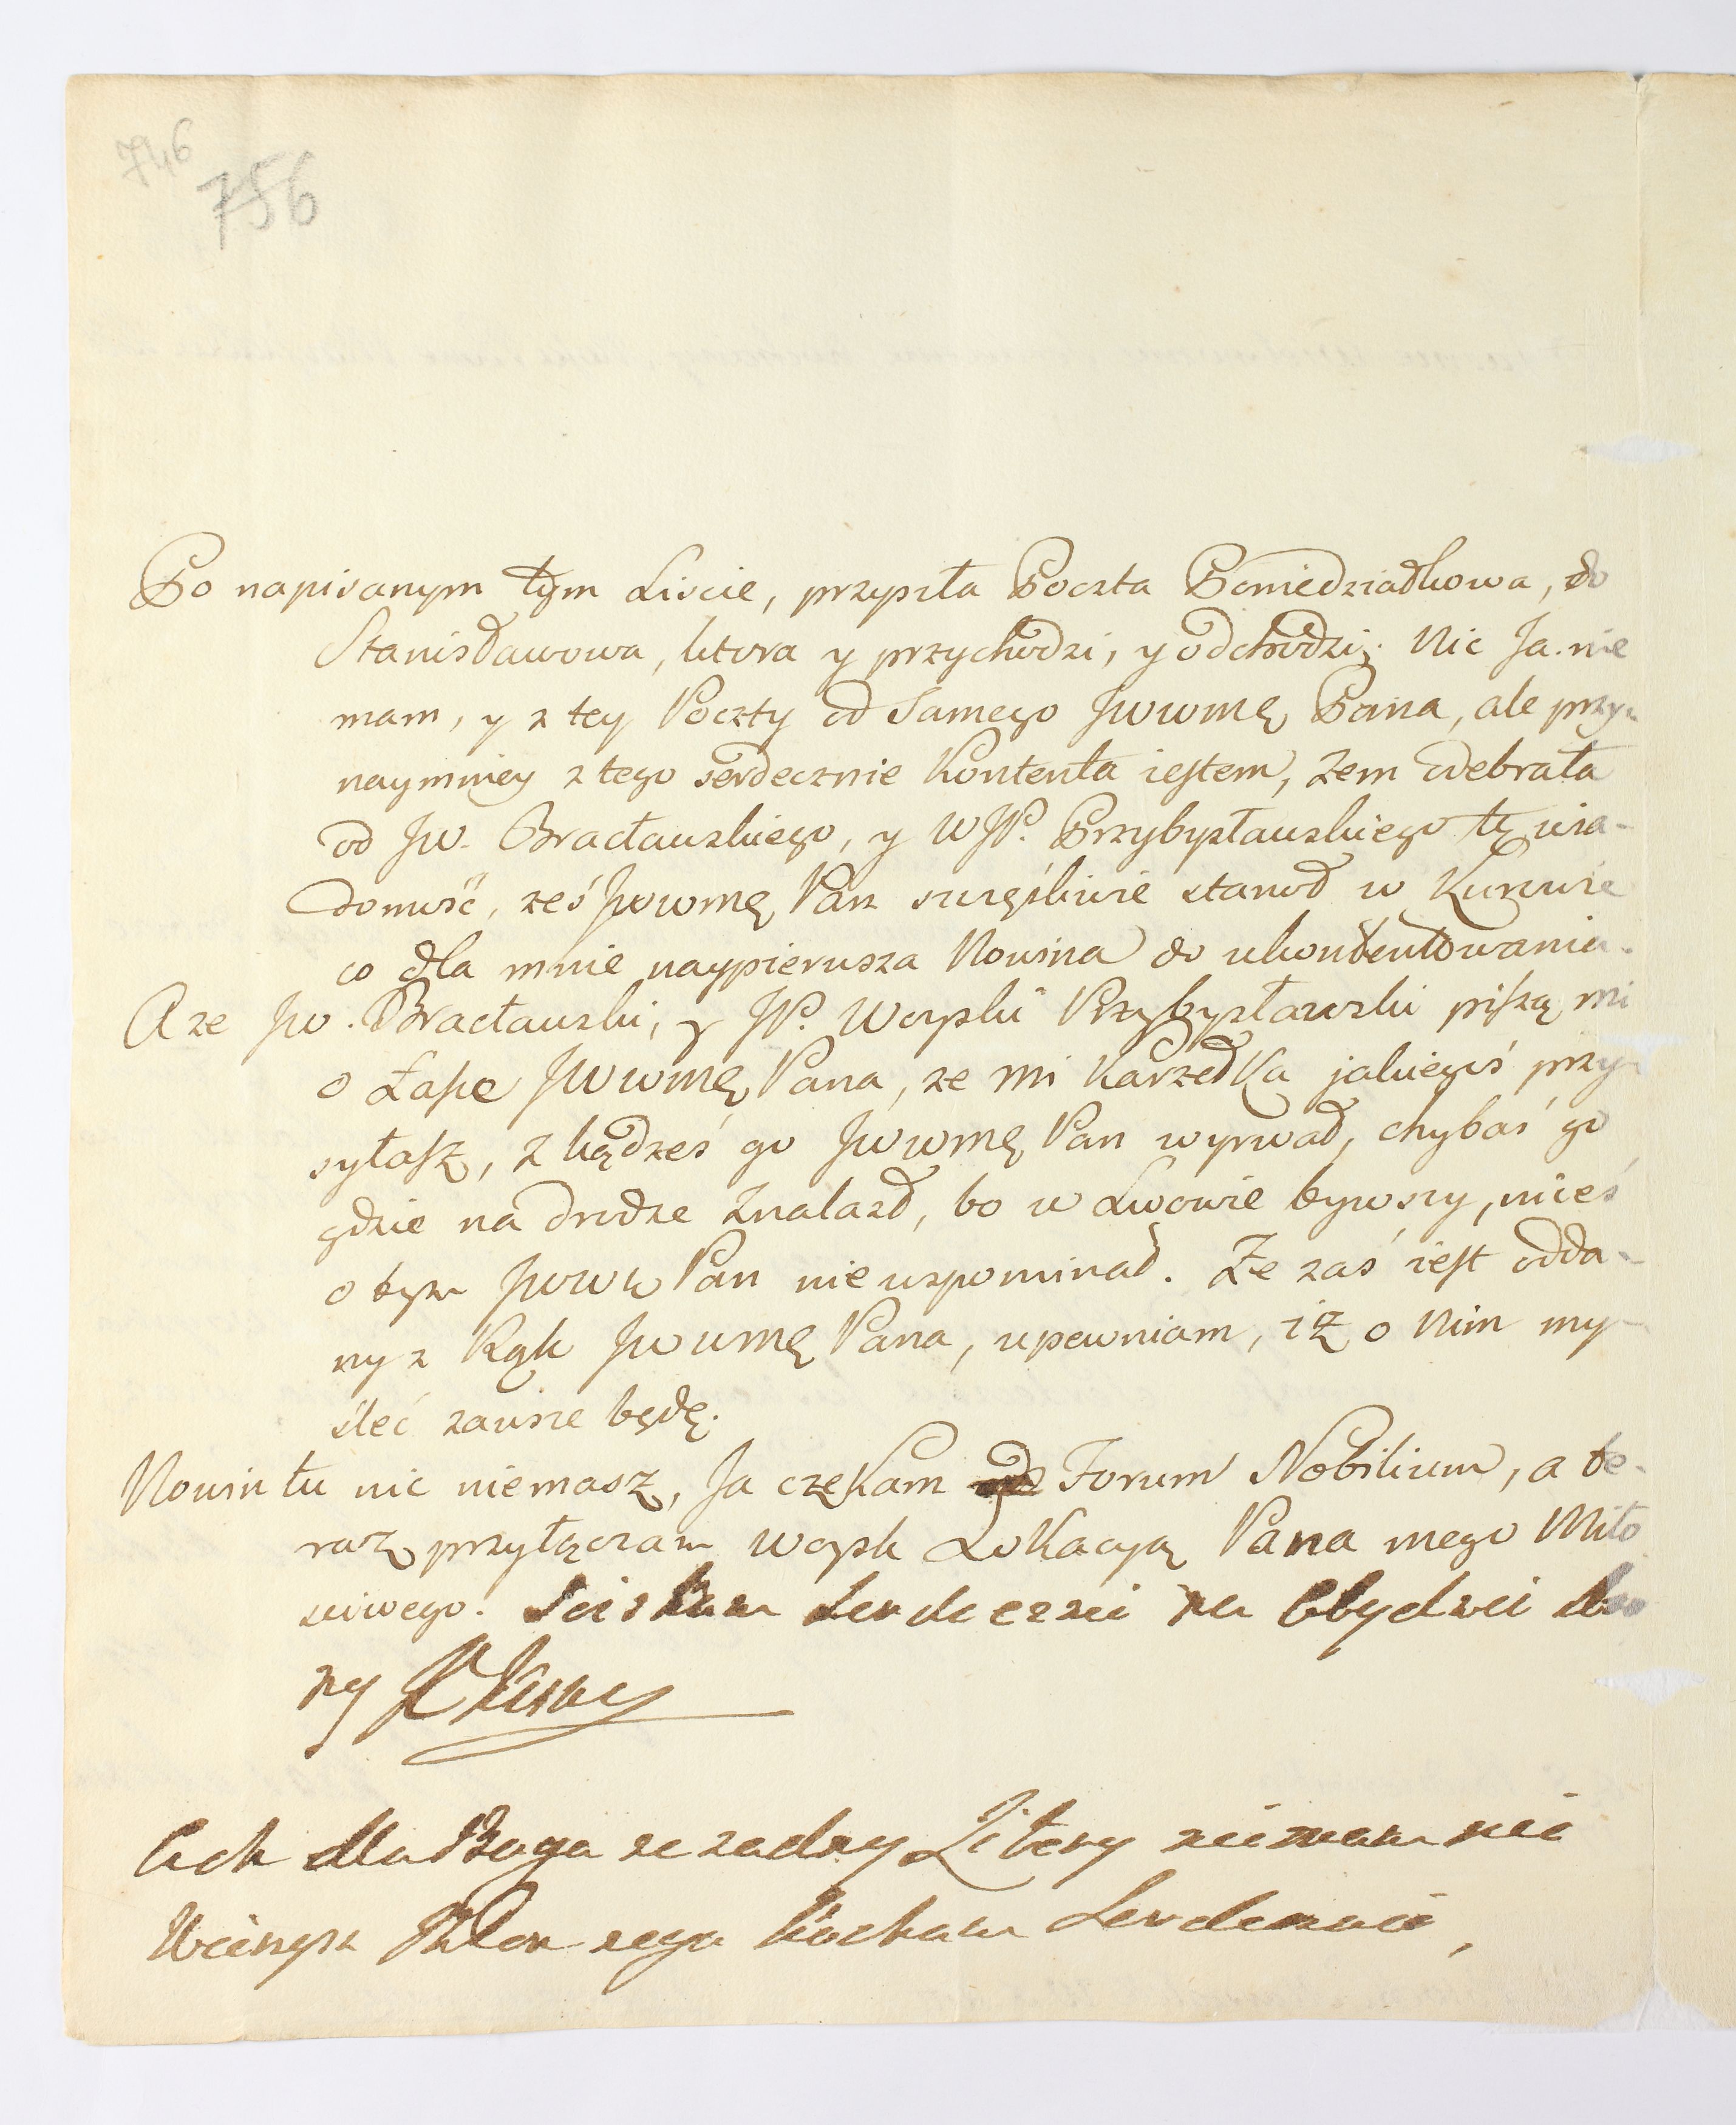 746
756
Po napisanym tym Liscie, przyszła Poczta Poniedziałkowa, do
Stanisławowa, ktora y przychodzi, y odchodzi; Nic Ja nie
mam, y z tey Poczty od Samego JWWMę Pana, ale przy
naymniey z tego serdecznie Kontenta iestem, żem odebrała
od Jw. Bracławskiego, y WJP. Przybysławskiego tę wia-
domość, żeś JWWMę Pan szczęśliwie stanoł w Kurowie
co dla mnie naypierwsza Nowina do ukontentowania.
A ze Jw. Bracławski, y JP. Woyski Przybysławski piszą mi
o Łasce JWWMę Pana, ze mi Karzełka jakiegoś przy-
syłasz, z kądżeś go JWWMę Pan wyrwał, chybaś go
gdzie na drodze znalazł, bo w Lwowie bywszy, nieś
o tym JWWM Pan nie wspominał. Ze zaś iest odda-
ny z Rąk JWWMę Pana, upewniam, iż o Nim my-
śleć zawsze będę.
Nowin tu nic niemasz, Ja czekam Forum Nobilium, a te-
raz przyłączam woysk Lokacyą Pana mego Miło
sciwego. Sciskam Serdecznie
Ach dla Boga ze zadny Litery niemam nie
kocham Serdecznie,